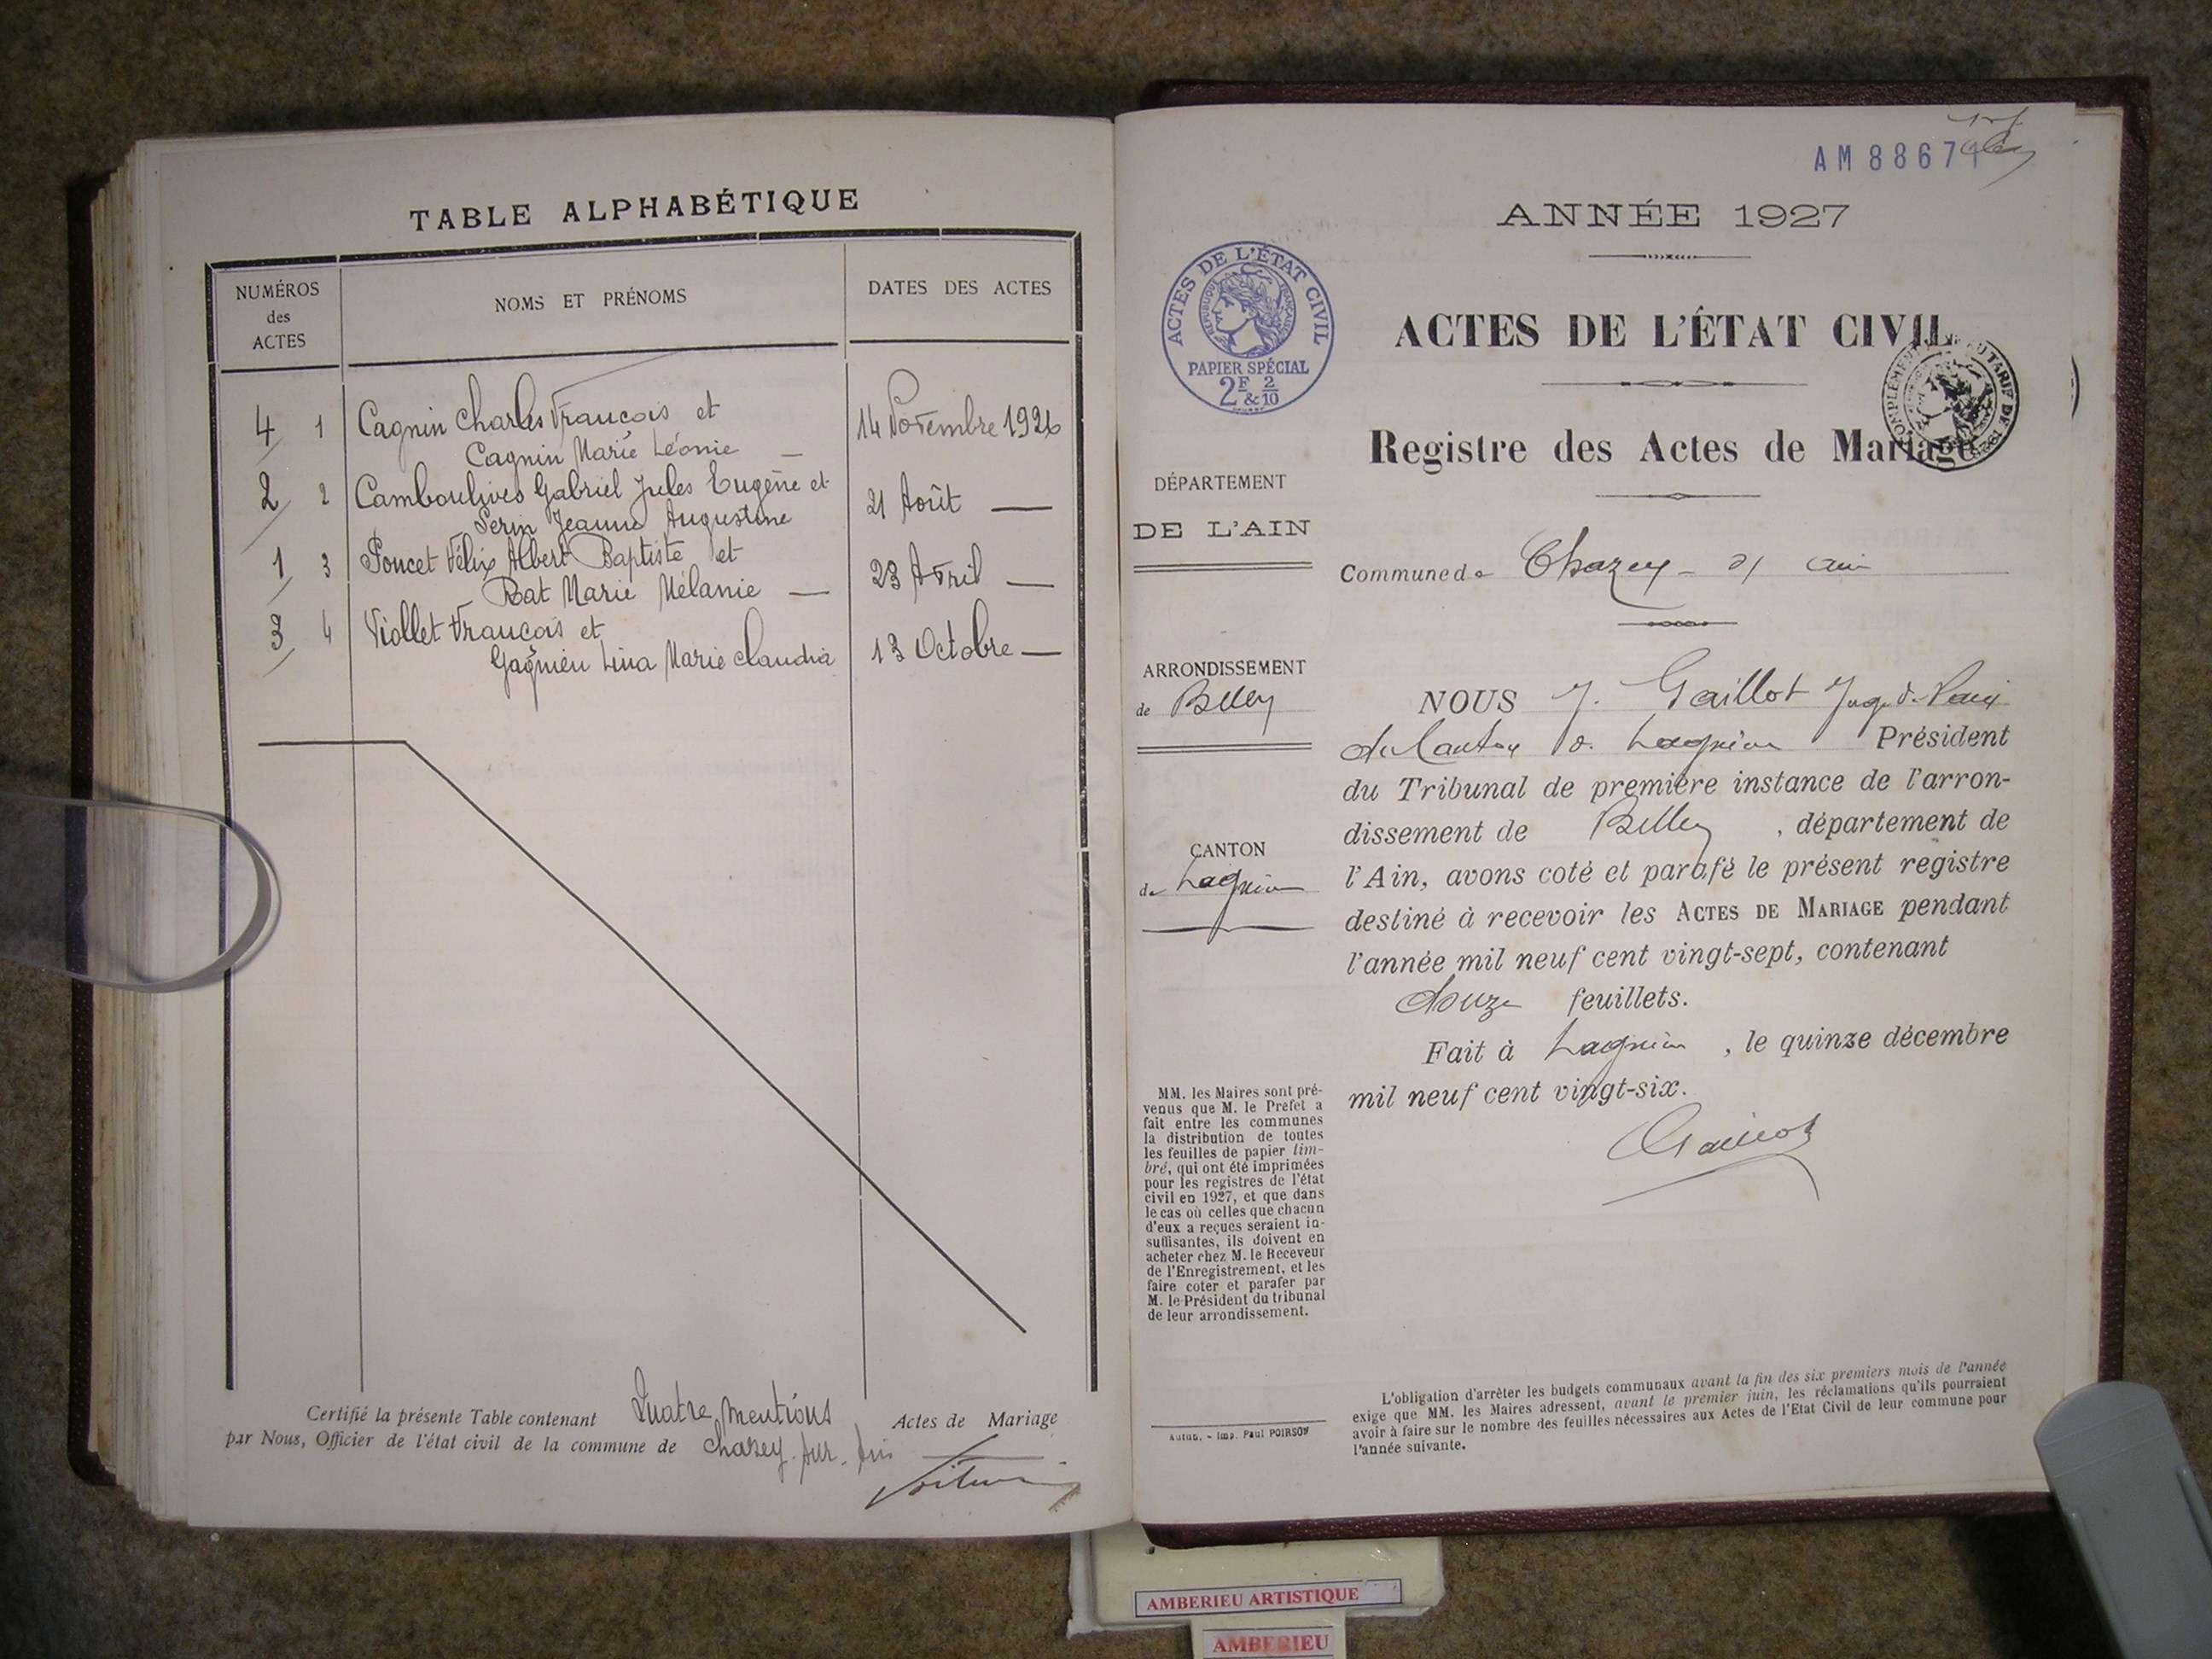 TABLE ALPHABÉTIQUE
NUMÉROS des ACTES
NOMS ET PRÉNOMS
DATES DES ACTES
4 1 Cagnin Charles François et 14 Novembre 1926
Cagnin Marie Léonie —
2 2 Camboulives Gabriel Jules Eugène et 21 Août —
Serin Jeanne Augustine
1 3 Poncet Félix Albert Baptiste et 23 Avril —
Rat Marie Mélanie —
3 4 Viollet François et
Gagnieu Lina Marie Claudia 13 Octobre —
Certifié la présente Table contenant Quatre mentions Actes de Mariage
par Nous, Officier de l'état civil de la commune de Chazey-sur-Ain
AM 88671
ANNÉE 1927
ACTES DE L'ÉTAT CIVIL
RÉPUBLIQUE FRANÇAISE
PAPIER SPÉCIAL
2F & 2/10
ACTES DE L'ÉTAT CIVIL
Registre des Actes de Mariage
DÉPARTEMENT
DE L'AIN
Commune de Chazey-s/ ain
ARRONDISSEMENT
de Belley
CANTON
de Lagnieu
NOUS J. Gaillot Juge de Paix
du Canton de Lagnieu Président
du Tribunal de première instance de l'arron-
dissement de Belley, département de
l'Ain, avons coté et parafé le présent registre
destiné à recevoir les ACTES DE MARIAGE pendant
l'année mil neuf cent vingt-sept, contenant
douze feuillets.
Fait à Lagnieu, le quinze décembre
mil neuf cent vingt-six.
Gaillot
MM. les Maires sont pré-
venus que M. le Préfet a
fait entre les communes
la distribution de toutes
les feuilles de papier tim-
bré, qui ont été imprimées
pour les registres de l'état
civil en 1927, et que dans
le cas où celles que chacun
d'eux a reçues seraient in-
suffisantes, ils doivent en
acheter chez M. le Receveur
de l'Enregistrement, et les
faire coter et parafer par
M. le Président du tribunal
de leur arrondissement.
Autun. - Imp. Paul POIRSON
L'obligation d'arrêter les budgets communaux avant la fin des six premiers mois de l'année
exige que MM. les Maires adressent, avant le premier juin, les réclamations qu'ils pourraient
avoir à faire sur le nombre des feuilles nécessaires aux Actes de l'Etat Civil de leur commune pour
l'année suivante.
AMBERIEU ARTISTIQUE
AMBERIEU